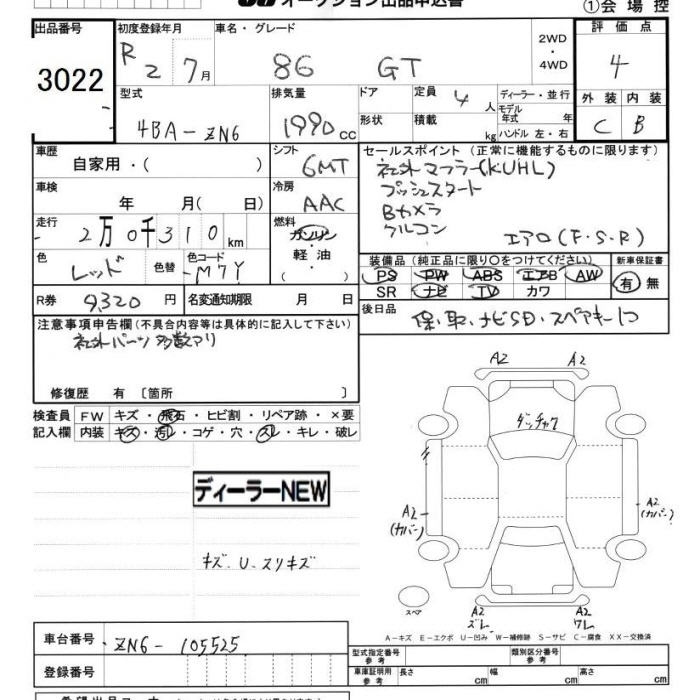 オークション出品申込書
①会場控
出品番号
3022
初度登録年月
R 2 7月
車名・グレード
86 GT
2WD
・
4WD
評価点
4
型式
4BA-ZN6
排気量
1990cc
ドア
形状
定員 4人
積載 kg
ディーラー・並行
モデル
年式 年
ハンドル 左・右
外装 内装
C B
車歴
自家用・( )
シフト
6MT
車検
年 月( 日)
冷房
AAC
走行
2万0千310km
燃料
ガソリン
・
軽油
・
( )
セールスポイント (正常に機能するものに限ります)
社外マフラー(KUHL)
プッシュスタート
Bカメラ
クルコン
エアロ(F・S・R)
色
レッド
色替
色コード
M7Y
装備品 (純正品に限り〇をつけてください)
PS PW ABS エアB AW
SR ナビ TV カワ
新車保証書
有 無
R券 9320円
名変通知期限 月 日
後日品
保・取・ナビSD・スペアキー1コ
注意事項申告欄 (不具合内容等は具体的に記入して下さい)
社外パーツ多数アリ
修復歴 有 〔箇所 〕
検査員
記入欄
FW キズ・飛石・ヒビ割・リペア跡・×要
内装 キズ・汚レ・コゲ・穴・スレ・キレ・破レ
ディーラーNEW
キズ・U・スリキズ
A2 A2
ダッチャク
A2
(カバー)
A2
(カバー)
スペア
A2
ズレ
A2
ワレ
A-キズ E-エクボ U-凹み W-補修跡 S-サビ C-腐食 XX-交換済
車台番号 ZN6-105525
登録番号
型式指定番号
参考
類別区分番号
参考
車庫証明用
参考
長さ cm
幅 cm
高さ cm